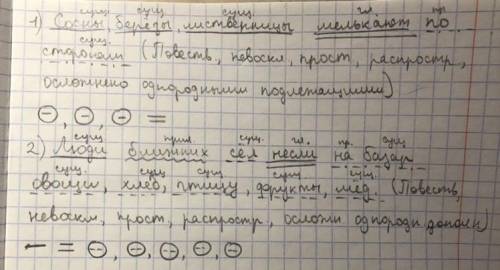 сущ. сущ. сущ. гл. пр
1) Сосны березы, лиственницы мелькают по
сущ.
сторонам (Повеств, невоскл, прост, распростр,
осложнено однородными подлежащими)
сущ. прил сущ. гл. пр. сущ
2) Люди ближних сел несли на базар
сущ. сущ. сущ. сущ сущ.
овощи, хлеб, птицу, фрукты, мед. (Повеств,
невоскл, прост, распростр, осложн однородн. дополн)